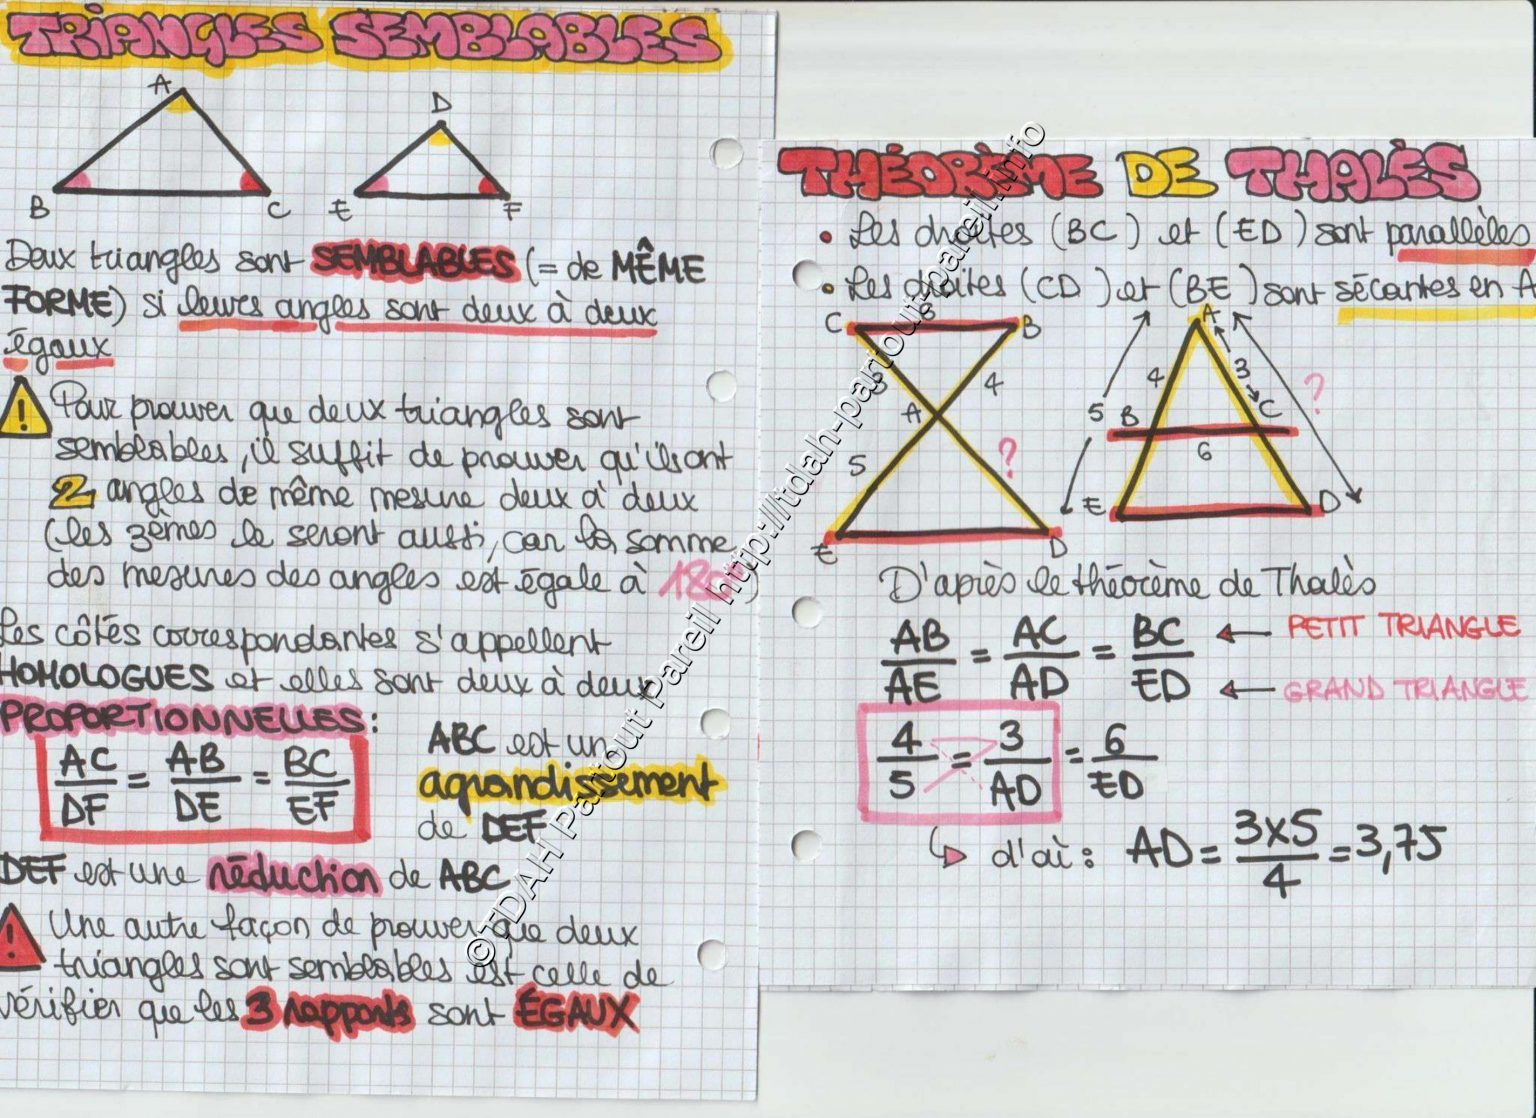 TRIANGLES SEMBLABLES
A
D
B
C
E
F
Deux triangles sont SEMBLABLES (= de MÊME
FORME) si leurs angles sont deux à deux
égaux
! Pour prouver que deux triangles sont
semblables, il suffit de prouver qu'ils ont
2 angles de même mesure deux à deux
(les 3èmes le seront aussi, car la somme
des mesures des angles est égale à 180°)
Les côtés correspondantes s'appellent
HOMOLOGUES et elles sont deux à deux
PROPORTIONNELLES :
AC/DF = AB/DE = BC/EF
ABC est un
agrandissement
de DEF
DEF est une réduction de ABC
! Une autre façon de prouver que deux
triangles sont semblables est celle de
vérifier que les 3 rapports sont ÉGAUX
THÉORÈME DE THALÈS
• Les droites (BC) et (ED) sont parallèles
• Les droites (CD) et (BE) sont sécantes en A
C
B
3
4
A
5
?
E
D
A
4
3
?
5
B
C
6
E
D
D'après le théorème de Thalès
AB/AE = AC/AD = BC/ED
← PETIT TRIANGLE
← GRAND TRIANGLE
4/5 = 3/AD = 6/ED
d'où : AD = 3x5/4 = 3,75
©TDAH Partout Pareil http://tdah-partout-pareil.info